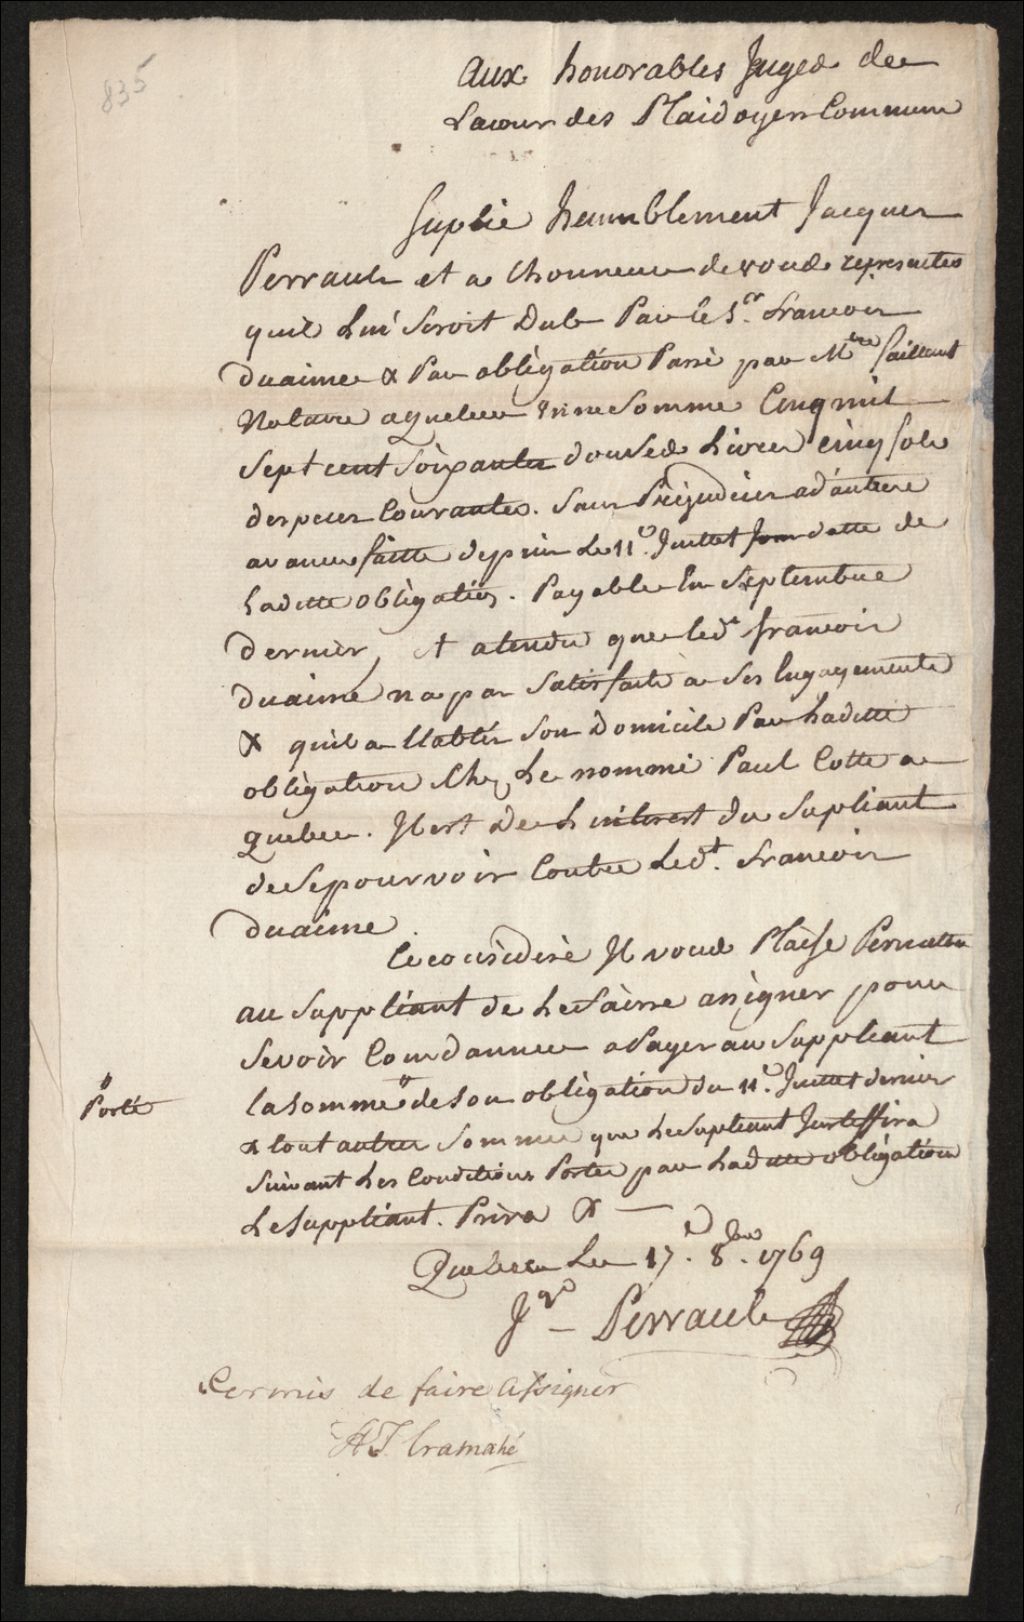 835
Aux honorables Juges de
Lacour des Plaidoyers Commun
Suplie humblement Jacques
Perrault et a Lhonneur de vous representer
quil Lui Seroit Dub Par le Sr. francois
duaime & Par obligation Passé par Mtre Saillant
Notaire aquebec une Somme Cinq mil
Sept cent Soixante douse Livres cinq sols
despeces Courante. Sans Préjudicier ad'autres
avances faitte depuis Le 11e. Juillet Jour datte de
Laditte obligation. Payable En Septembre
dernier, et atendu que led.t francois
duaime na pas Satisfaite a Ses Engagements
& quil a Etablis Son Domicile Par Laditte
obligation Chez Le nommé Paul Cotte a
quebec. Il est De L'interest du Supliant
de Sepourvoir Contre Led.t francois
duaime
Ce considéré Il vous Plaise Permettre
au Suppliant de Le faire assigner pour
Sevoir Condanner a Payer au Suppliant
la somme " de Son obligation du 11e. Juillet dernier
" Porté
& tout autre Somme que Le Supliant Justiffira
Suivant Les Conditions Portée par Laditte obligation
Le Suppliant. Prira &
Quebec Le 17e. 8bre. 1769
Jqs Perrault
Permis de faire assigner
H T Cramahé